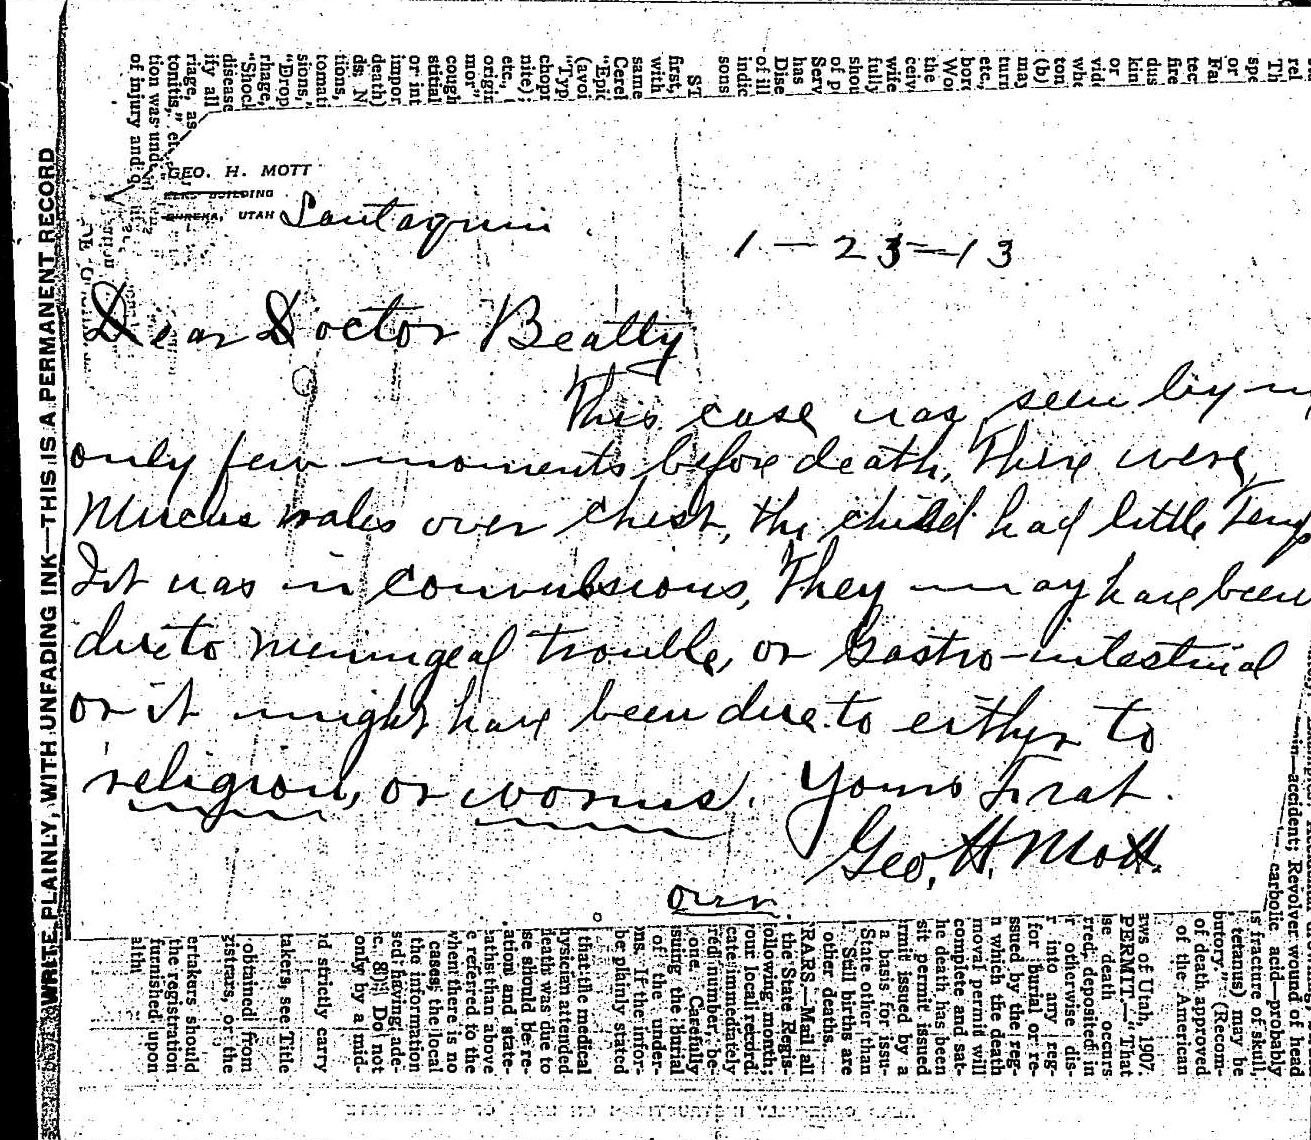 WRITE PLAINLY, WITH UNFADING INK—THIS IS A PERMANENT RECORD
GEO. H. MOTT
ELKS BUILDING
EUREKA, UTAH Santaquin
1-23-13
Dear Doctor Beatty
This case was seen by
only few moments before death, There were
Mucus rales over chest, the child had little Temp
It was in convulsions, They may have been
due to meningeal trouble, or Gastro-intestinal
or it might have been due to either to
religion, or worms. Yours Frat.
Geo. H. Mott.
over.
rel
Th
spe
or
Fa
tec
fire
dus
kin
or
vid
whe
ton
(b)
may
turn
etc.,
bor
Wor
the
ceiv
wife
fully
shou
of p
Serv
has
Dise
of ill
indic
sons
ST
first,
with
same
Cerel
"Epic
(avoi
"Typ
chopr
nite);
etc.,
origin
mor"
cough
stitial
or int
impor
death)
ds: N
tions,
tomati
sions,
"Drop
rhage,
"Shock
disease
ify all
riage, as
tonitis," etc
tion was und
of injury and
Revolver wound of head
—accident;
carbolic acid—probably
is fracture of skull,
tetanus) may be
butory." (Recom-
of death approved
of the American
aws of Utah, 1907.
PERMIT—"That
se death occurs
rred, deposited in
r otherwise dis-
r into any reg-
for burial or re-
ssued by the reg-
n which the death
moval permit will
complete and sat-
he death has been
sit permit issued
rmit issued by a
a basis for issu-
State other than
Still births are
other deaths.
RARS.—Mail all
the State Regis-
ollowing month;
our local record
cate immediately
red number, be-
one. Carefully
suing the burial
of the under-
ns. If the infor-
be plainly stated
that the medical
ysician attended
death was due to
se should be re-
ation and state-
aths than above
e referred to the
when there is no
cases, the local
the information
sed having ade-
c. 8): Do not
only by a mid-
d strictly carry
takers, see Title
obtained from
istrars, or the
ertakers should
the registration
furnished upon
alth